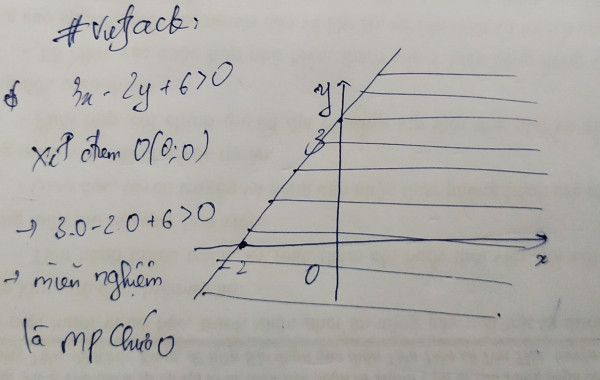 #vietjack,
3x - 2y + 6 > 0
Xét điểm O(0;0)
→ 3.0 - 2.0 + 6 > 0
→ miền nghiệm
là mp chứa O
y
3
-2
O
x